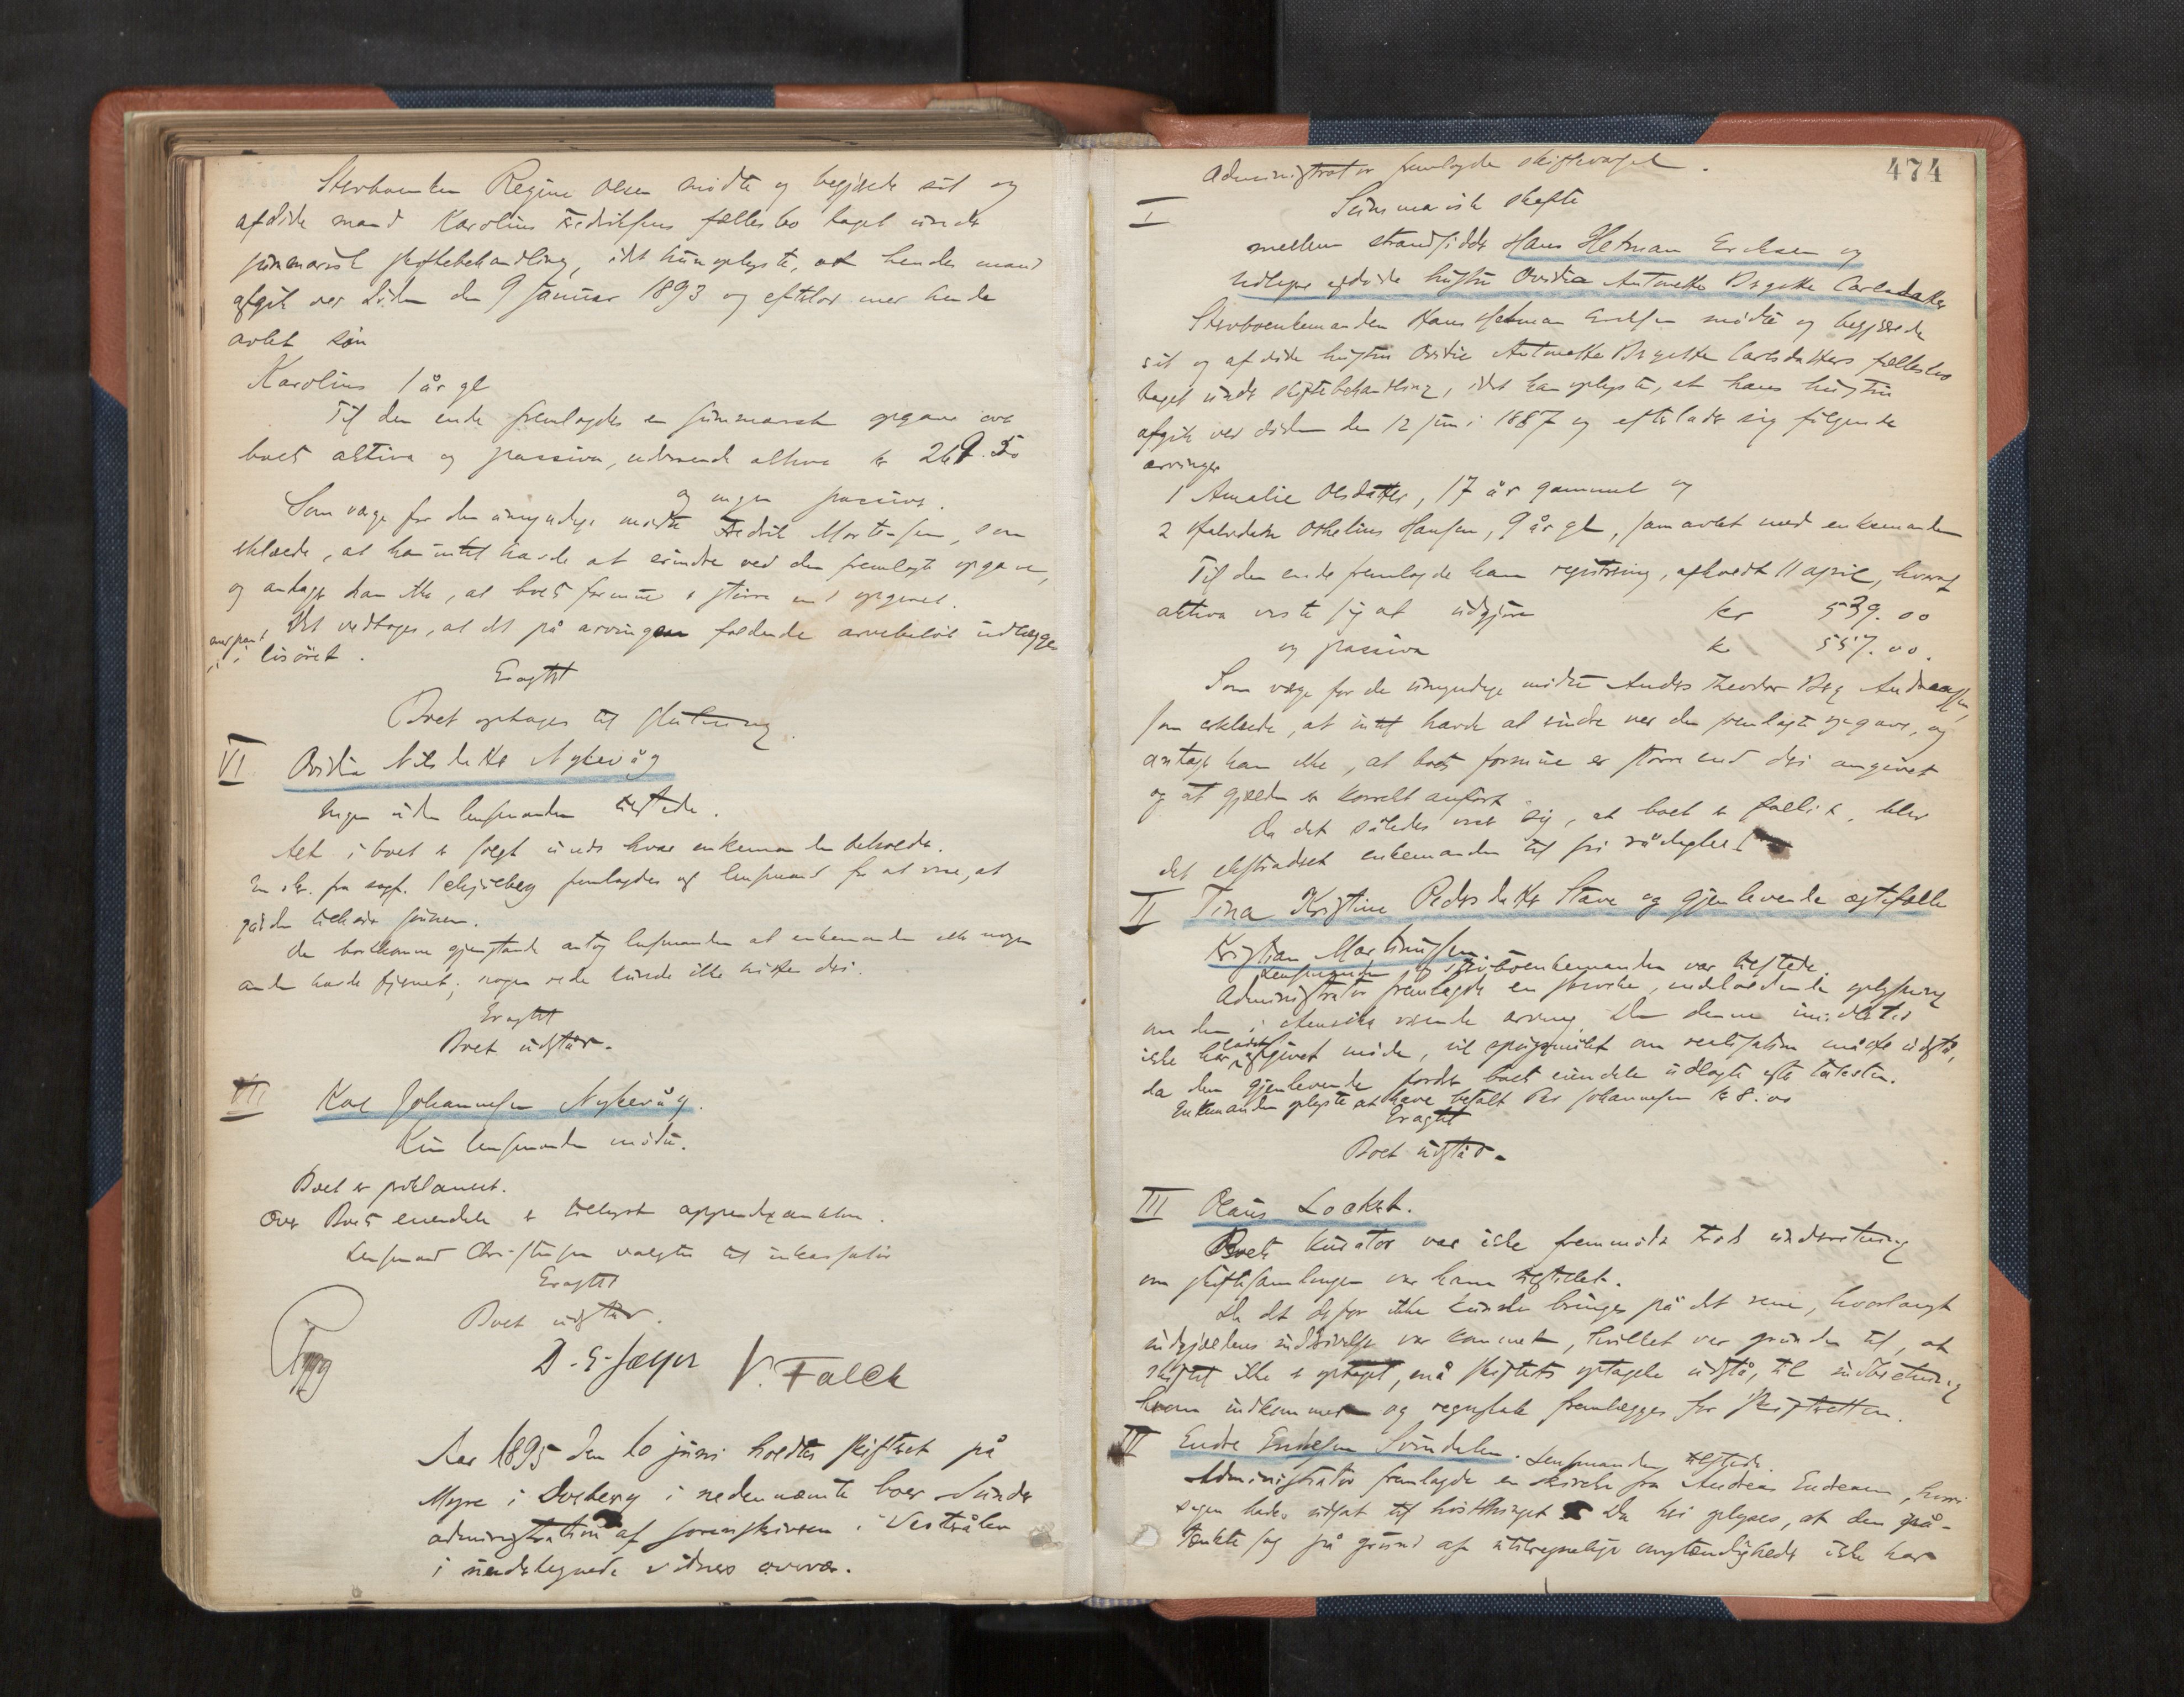 Sterboenken Regine Olsen mødte og begjærede sit og
afdøde mand Karolius Fredriksens fællesbo taget under
summarisk skiftebehandling, idet hun oplyste, at hendes mand
afgik ved døden den 9 januar 1893 og efterlod med hende
avlet søn
Karolius 1 år gl
Til den ende fremlagdes en summarisk opgave over
boets aktiva og passiva, udvisende aktiva kr 269.50
og ingen passiva.
Som værge for den umyndige mødte Fredrik Mortensen, som
erklærede, at han intet havde at erindre ved den fremlagte opgave,
og antager han ikke, at boets formue er større end opgivet.
Det vedtoges, at det på arvingen faldende arvebeløb udlægges
i løsøret.
Eragtet
Boet optages til slutning.
VI Ovidia Nilsdatter Nykevåg
Ingen uden lensmanden tilstede.
Alt i boet er solgt unds hvad enkemanden beholdt.
En skr. fra sagf. fremlagdes af lensmand for at vise, at
gården tilhører sønnen.
De bortkomne gjenstande antog lensmanden at enkemanden eller nogen
anden havde fjernet; nogen rede kunde ikke skaffes deri.
Eragtet
Boet udstår.
VII Karl Johannesen Nykevåg.
Kun lensmanden mødte.
Boet er proklameret.
Over Boets eiendele er
Lensmand Christensen valgtes til inkassator
Eragtet
Boet udstår.
D. G. V. Falck
Aar 1895 den 10 juni holdtes skifteret på
Myre i Dverberg i nedennævnte boer under
administration af sorenskriveren i Vesterålen
i undertegnede vidners overvær.
474
Administrator fremlagde skiftevarsel.
I Summarisk skifte
mellem strandsidder Hans Hetman Eriksen og
afdøde hustru Ovidia Antonette Birgitte Carlsdatter
Sterboenkemanden Hans Hetman Eriksen mødte og begjærede
sit og afdøde hustru Ovidie Antonette Birgitte Carlsdatters fællesbo
taget under skiftebehandling, idet han oplyste, at hans hustru
afgik ved døden den 12 juni 1887 og efterlader sig følgende
arvinger
1 Amalie Olsdatter, 17 år gammel og
2 Othelius Hansen, 9 år gl, sam avlet med enkemanden
Til den ende fremlagde han registrering, afholdt 11 april, hvoraf
aktiva viste sig at udgjøre kr 539.00
og passiva kr 557.00.
Som værge for de umyndige mødte Anders Theodor Berg Andreassen,
som erklærede, at intet havde at erindre ved den fremlagte opgave, og
antager han ikke, at boets formue er større end deri angivet
og at gjælden er korrekt anført.
Da det således viste sig, at boet er fallit, blev
det ekstraderet enkemanden til fri rådighed
II Tina Kristine Pedersdatter Stave og gjenlevende ægtefælle
Kristian Martinussen.
Lensmanden og sterboenkemanden var tilstede.
Administrator fremlagde en skrivelse, indeholdende oplysning
om den i Amerika værende arving. Da denne imidlertid
ikke har ladet afgivet møde, vil spørgsmålet om realisation måtte udstå,
da den gjenlevende fordrer boets eiendele udlagte efter taksten.
Enkemanden oplyste at have betalt Per Johannesen kr 8.00
Eragtet
Boet udstår.
III Olaus Lockert.
Boets kurator var ikke fremmødt trods underretning
om skiftesamlingen var ham tilstillet.
Da det derfor ikke kunde bringes på det rene, hvorlangt
indgjældens inddrivelse var kommet, hvilket var grunden til, at
skiftet ikke er optaget, må skiftets optagelse udstå, til indberetning
herom indkommer og regnskab fremlægges for skifteretten.
IV Endre Endresen Svindalen. Lensmanden tilstede.
Administrator fremlagde en skrivelse fra Andreas Endresen, hvori
sagen bedes udsat til høsttinget. Da der oplyses, at den på-
tænkte sag på grund af utilregnelige omstændigheder ikke har